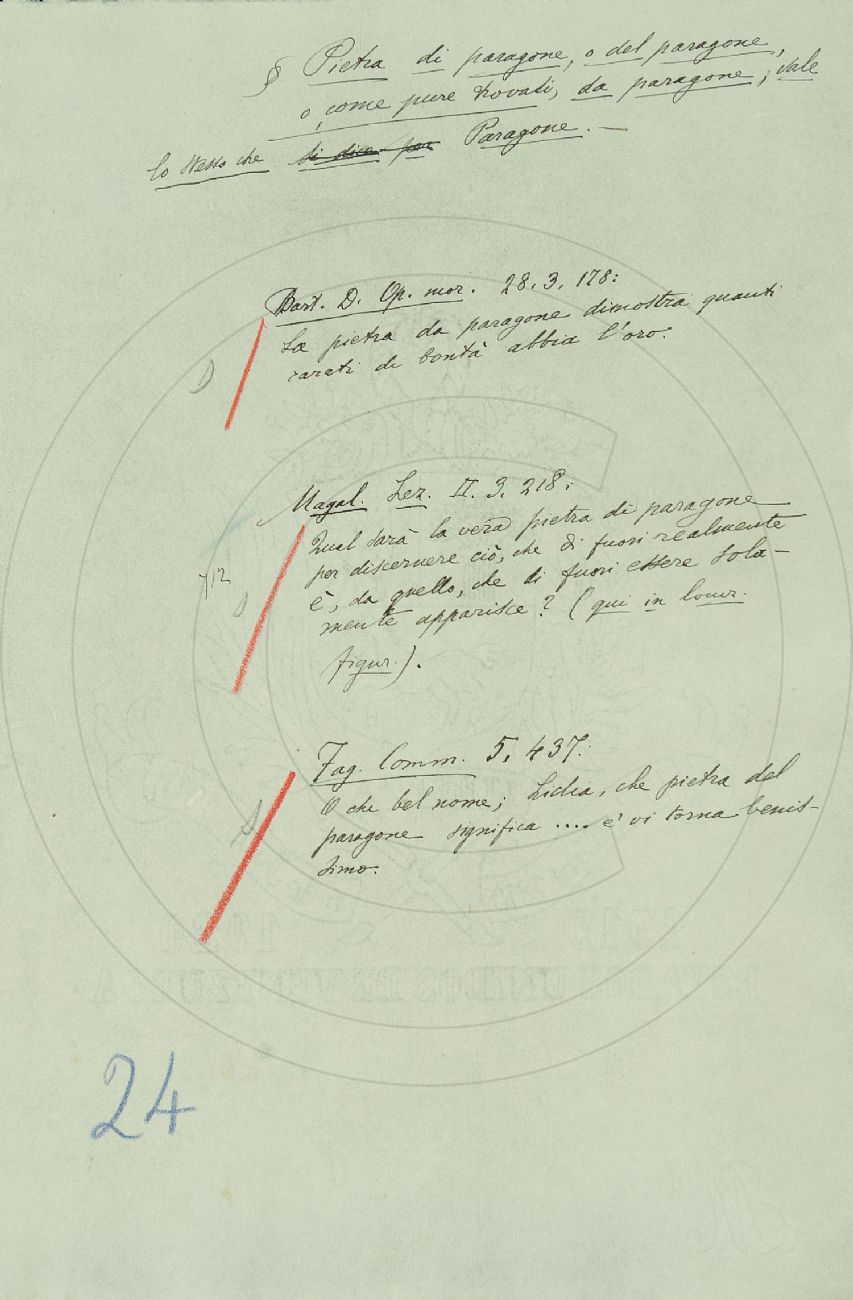 § Pietra di paragone, o del paragone,
o, come pure trovasi, da paragone, vale
lo stesso che si dice per Paragone. —
Bart. D. Op. mor. 28. 3. 178:
La pietra da paragone dimostra quanti
carati di bontà abbia l'oro.
Magal. Lez. II. 3. 218:
Qual sarà la vera pietra di paragone
per discernere ciò, che di fuori realmente
712
è, da quello, che di fuori essere sola-
mente apparisce? (qui in locuz.
figur.).
Fag. Comm. 5. 437:
O che bel nome; Lidia, che pietra del
paragone significa .... e vi torna benis-
simo.
24